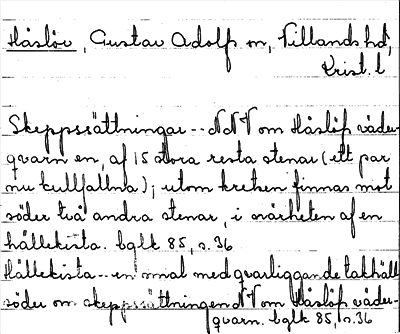 Håslöv, Gustav Adolfs sn, Villands hd,
Krist. l
Skeppssättningar -- NNV om Håslöf väder-
qvarn en, af 15 stora resta stenar (ett par
nu kullfallna); utom kretsen finnas mot
söder två andra stenar, i närheten af en
hällekista. bglk 85, s. 36
Hällekista -- en smal med qvarliggande takhäll
söder om skeppssättningen NV om Håslöf väder-
qvarn. bglk 85, s. 36